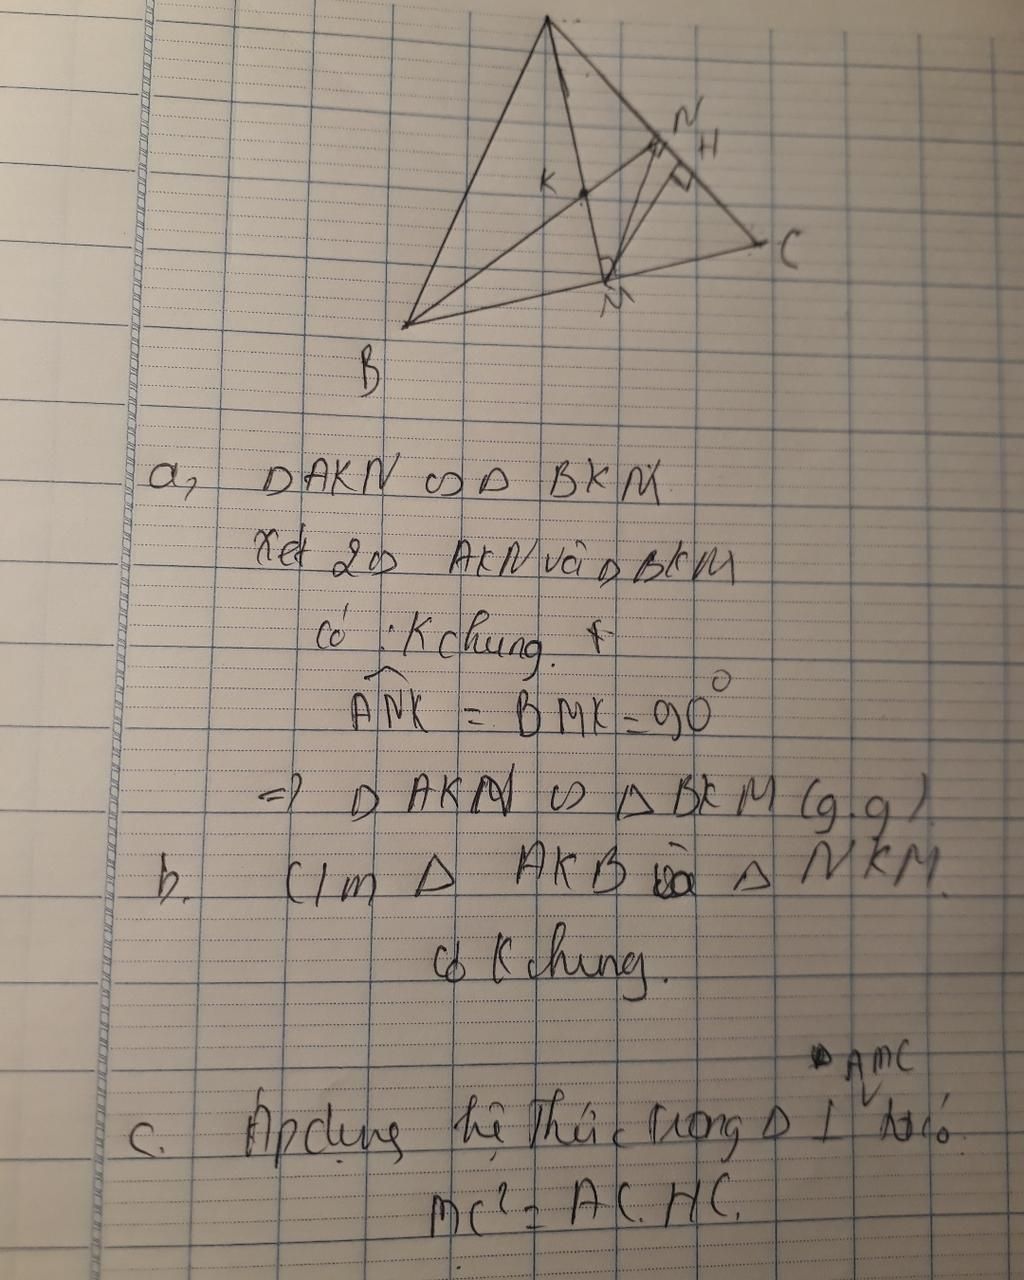 N
H
K
C
M
B
a, Δ AKN ∽ Δ BKM
Xét 2Δ AKN và Δ BKM
có : K chung.
ANK = BMK = 90°
=> Δ AKN ∽ Δ BKM (g.g)
b. C/m Δ AKB và Δ NKM.
có K chung.
Δ AMC
c. Áp dụng hệ thức trong Δ ⊥ có
MC² = AC. HC.